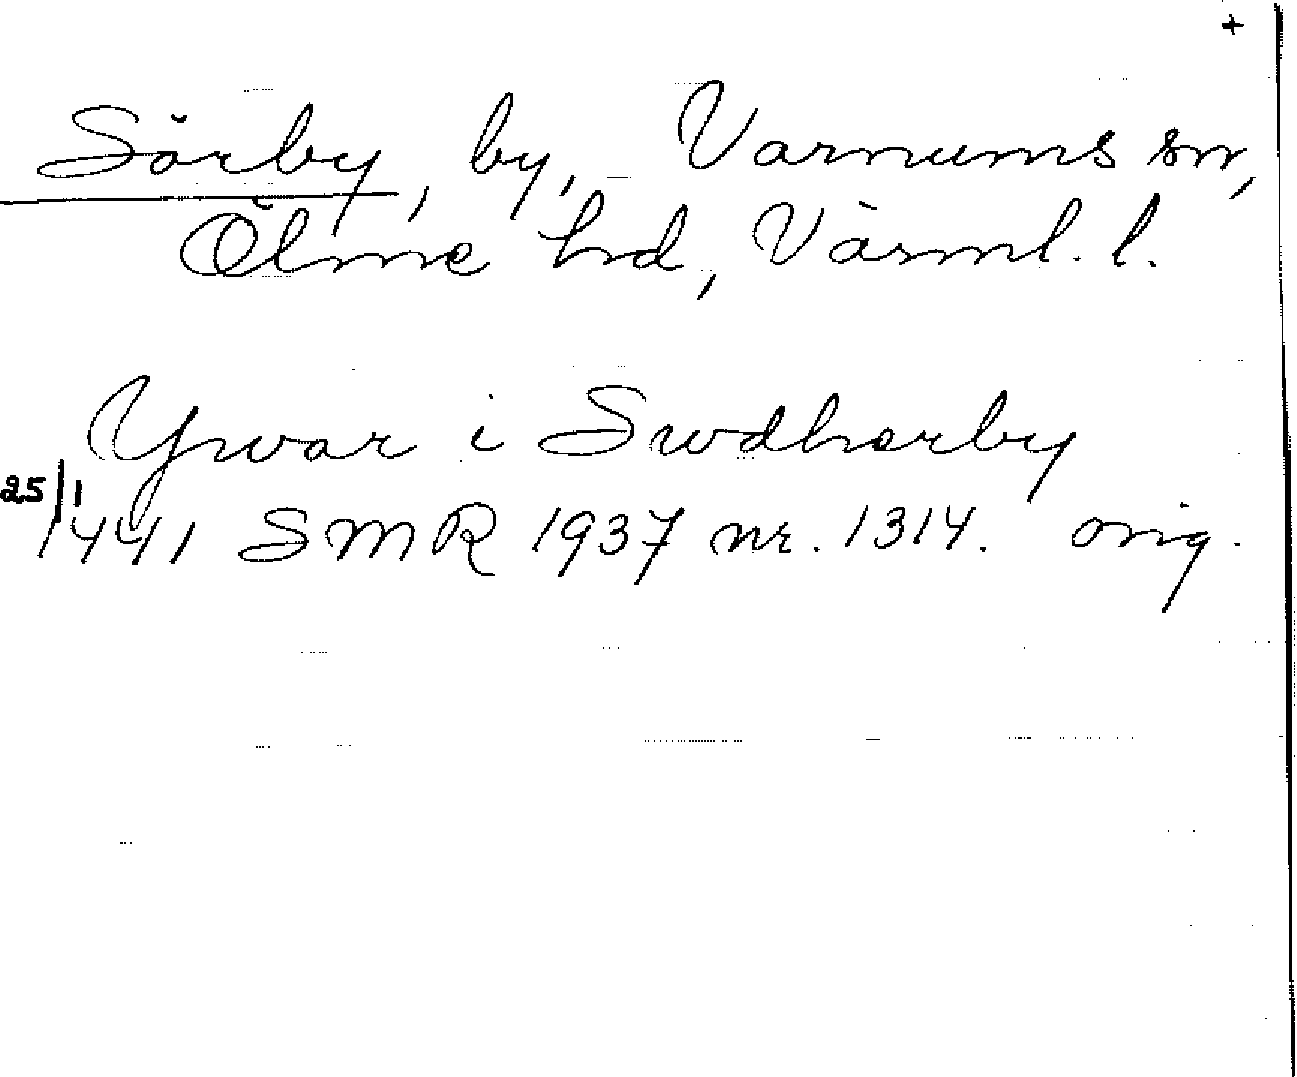 +
Sörby, by, Varnums sn,
Ölme hd, Värml. l.
Ywar i Swdherby
25/1 1441 SMR 1937 nr. 1314. orig.